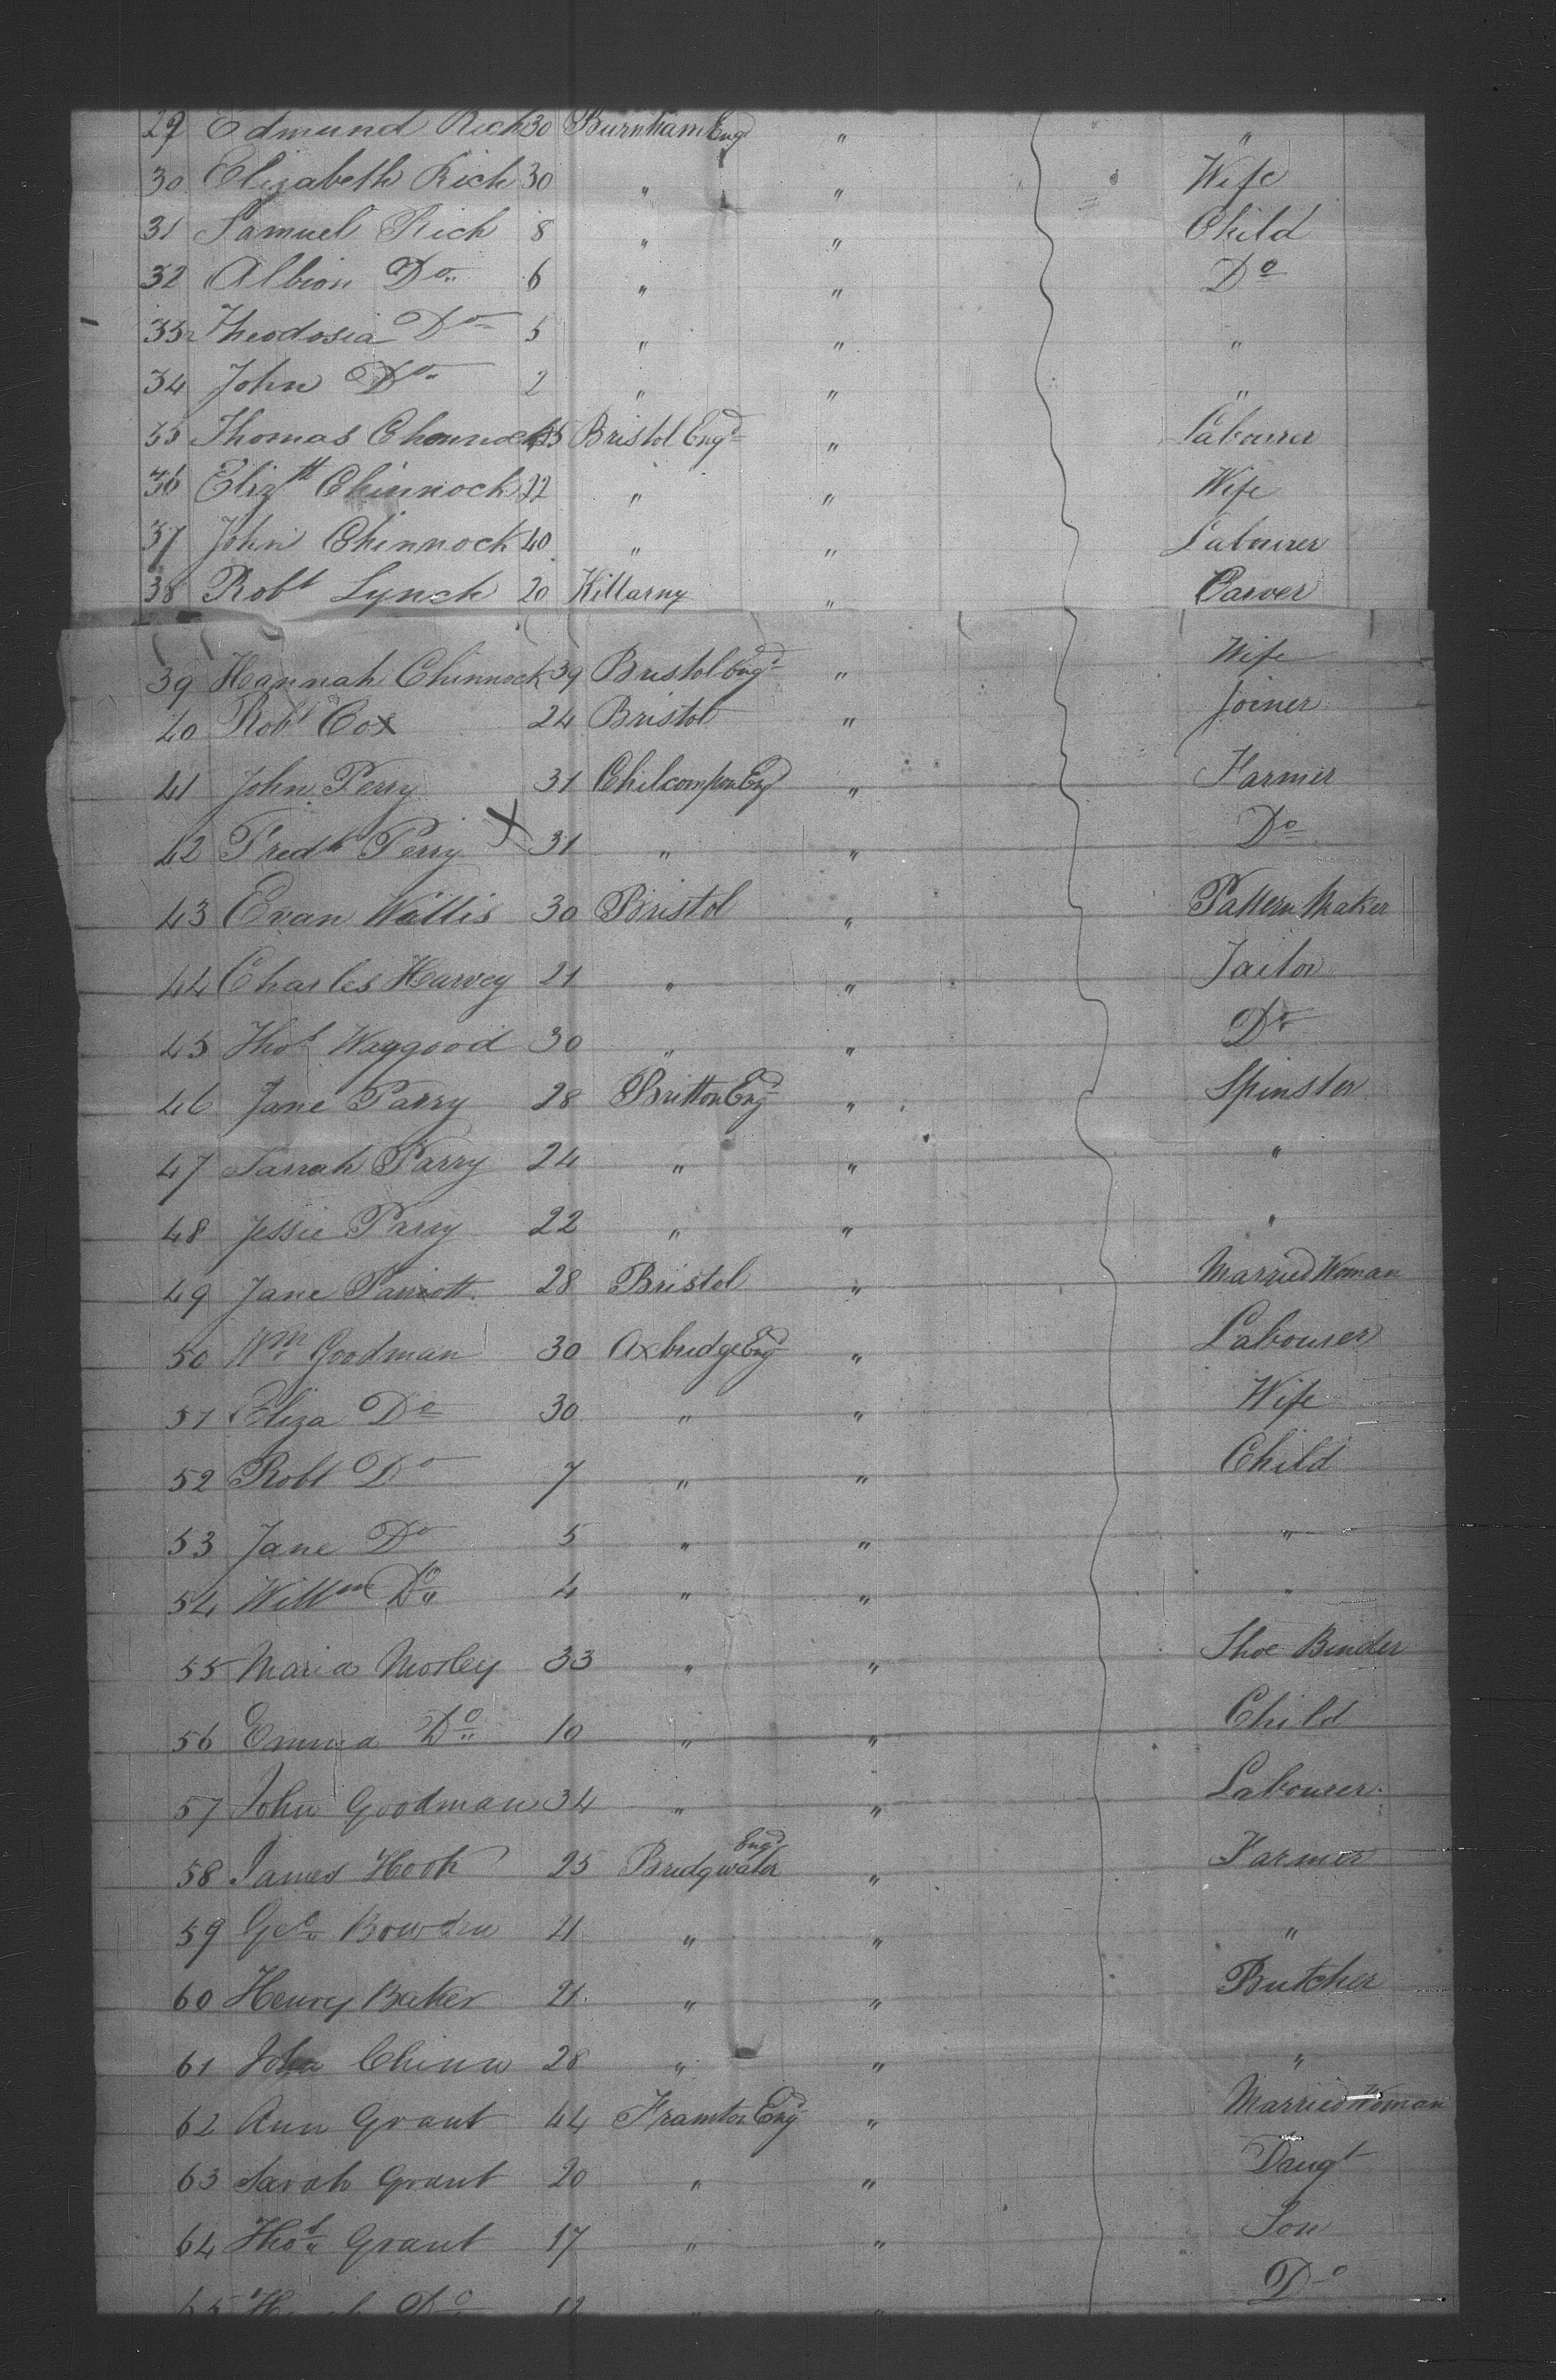 29 Edmund Rich 30 Burnham Engd " "
30 Elizabeth Rich 30 " " Wife
31 Samuel Rich 8 " " Child
32 Albion Do 6 " " Do
33 Theodosia Do 5 " " "
34 John Do 2 " " "
35 Thomas Bristol Engd " Labourer
36 Elizth Chinnock 22 " " Wife
37 John Chinnock 40 " " Labourer
38 Robt Lynch 20 Killarny " Carver
39 Hannah Chinnock 39 Bristol Engd " Wife
40 Robt Cox 24 Bristol " Joiner
41 John Perry 31 Chilcompton Engd " Farmer
42 Fredk Perry X 31 " " Do
43 Evan Wattis 30 Bristol " Pattern Maker
44 Charles Harvey 21 " " Tailor
45 Thos Waygood 30 " " Do
46 Jane Parry 28 Britton Engd " Spinster
47 Sarrah Parry 24 " " "
48 Jessie Parry 22 " " "
49 Jane Parrott 28 Bristol " Married Woman
50 Wm Goodman 30 Axbridge Engd " Labourer
51 Eliza Do 30 " " Wife
52 Robt Do 7 " " Child
53 Jane Do 5 " " "
54 Willm Do 4 " " "
55 Maria Mosley 33 " " Shoe Binder
56 Emma Do 10 " " Child
57 John Goodman 34 " " Labourer
58 James Hook 25 Bridgwater Engd " Farmer
59 Geo Bowden 21 " " "
60 Henry Baker 21 " " Butcher
61 John Chinn 28 " " "
62 Ann Grant 44 Framton Engd " Married Woman
63 Sarah Grant 20 " " Daugt
64 Thos Grant 17 " " Son
65 Do " " Do